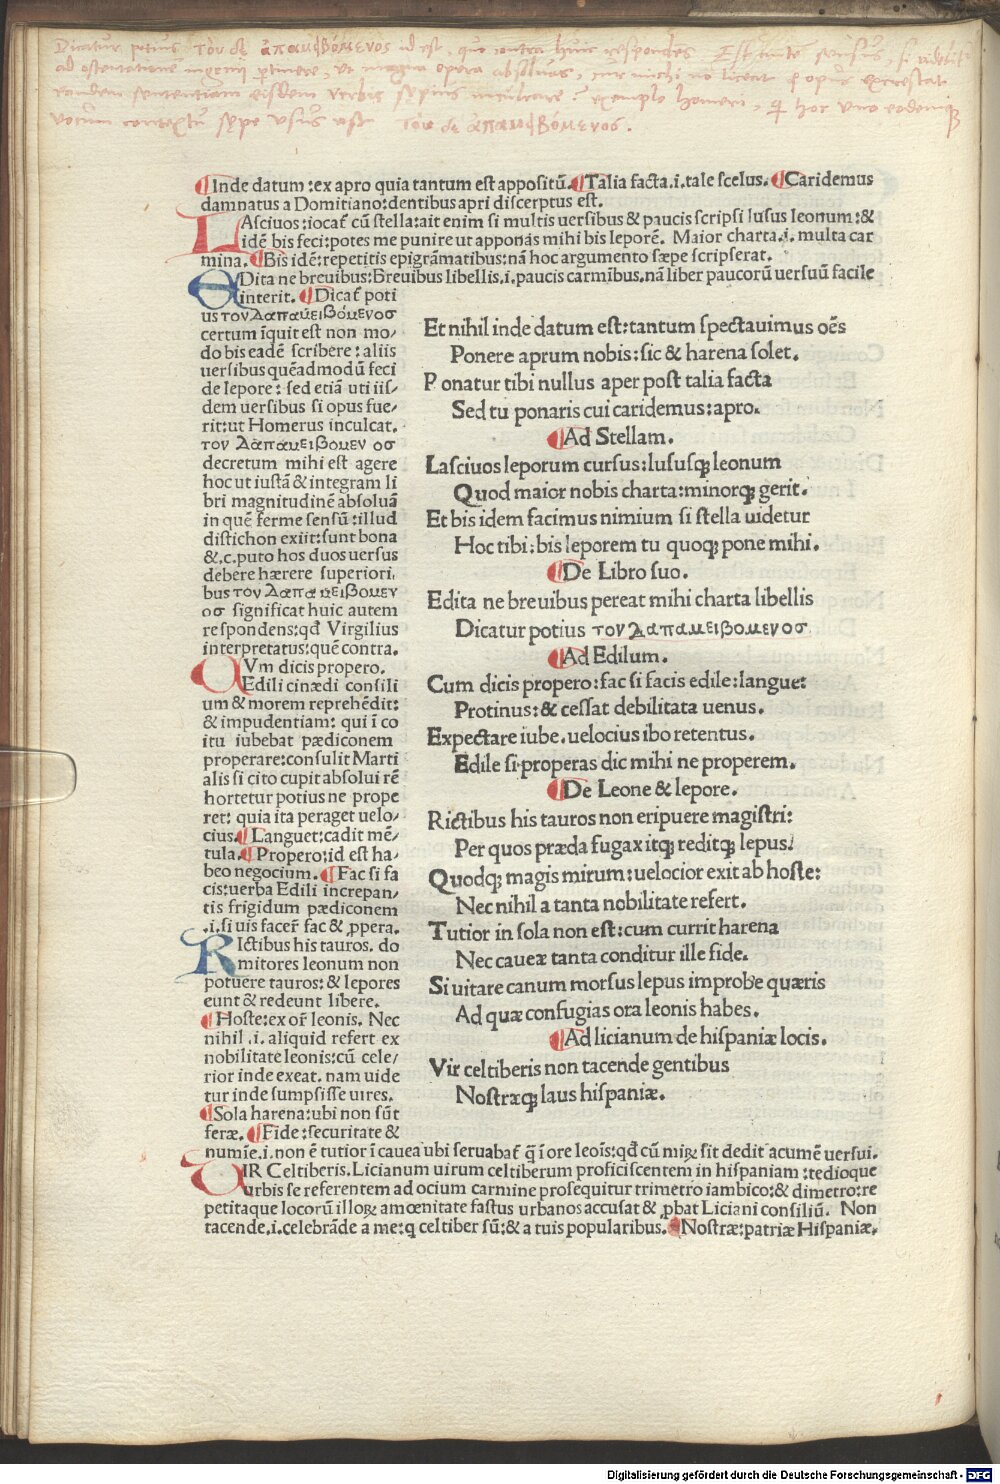 Dicatur potius τὸν δ' ἀπαμειβόμενος id est, quo contra huic respondes Est autem sensus, si videbitur
ad ostentationem ingenij ptinere, ut magna opera absoluas, cur michi nō liceat
eandem sententiam eisdem verbis sępius inculcare? exemplo homeri, qi hoc uno eodemq
vocum contextu sępe usus est τὸν δ' ἀπαμειβόμενος.
Inde datum:ex apro quia tantum est appositū. Talia facta.i.tale scelus. Caridemus
damnatus a Domitiano:dentibus apri discerptus est.
LAsciuos:iocat̄ cū stella:ait enim si multis uersibus & paucis scripsi lusus leonum:&
idē bis feci:potes me punire ut apponas mihi bis leporē. Maior charta.i. multa car
mina. Bis idē:repetitis epigrāmatibus:nā hoc argumento sæpe scripserat.
EDita ne breuibus:Breuibus libellis.i.paucis carmībus.nā liber paucorū uersuū facile
interit. Dicat̄ poti
us τον λαπαμειβόμενοσ
certum īquit est non mo/
do bis eadē scribere:aliis
uersibus quēadmodū feci
de lepore: sed etiā uti iis/
dem uersibus si opus fue/
rit:ut Homerus inculcat.
τον λαπαμειβομεν οσ
decretum mihi est agere
hoc ut iustā & integram li
bri magnitudinē absoluā
in quē ferme sensū:illud
distichon exiit:sunt bona
&.c.puto hos duos uersus
debere hærere superiori.
bus τον λαπαμειβομεν
οσ significat huic autem
respondens:qđ Virgilius
interpretatus:quē contra.
QVm dicis propero.
Edili cinædi consili
um & morem reprehēdit:
& impudentiam: qui ī co
itu iubebat pædiconem
properare:consulit Marti
alis si cito cupit absolui rē
hortetur potius ne prope
ret: quia ita peraget uelo/
cius. Languet:cadit mē/
tula. Propero:id est ha/
beo negocium. Fac si fa
cis:uerba Edili increpan/
tis frigidum pædiconem
.i.si uis facer̄ fac & ꝓpera.
RIctibus his tauros. do
mitores leonum non
potuere tauros:& lepores
eunt & redeunt libere.
Hoste:ex or̄ leonis. Nec
nihil .i. aliquid refert ex
nobilitate leonis:cū cele/
rior inde exeat. nam uide
tur inde sumpsisse uires.
Sola harena:ubi non sūt
feræ. Fide:securitate &
Et nihil inde datum est:tantum spectauimus oēs
Ponere aprum nobis:sic & harena solet.
Ponatur tibi nullus aper post talia facta
Sed tu ponaris cui caridemus:apro.
Ad Stellam.
Lasciuos leporum cursus:lususqꝫ leonum
Quod maior nobis charta:minorqꝫ gerit.
Et bis idem facimus nimium si stella uidetur
Hoc tibi:bis leporem tu quoqꝫ pone mihi.
De Libro suo.
Edita ne breuibus pereat mihi charta libellis
Dicatur potius τον λαπαμειβομενοσ
Ad Edilum.
Cum dicis propero:fac si facis edile:langue:
Protinus:& cessat debilitata uenus.
Expectare iube.uelocius ibo retentus.
Edile si properas dic mihi ne properem.
De Leone & lepore.
Rictibus his tauros non eripuere magistri:
Per quos præda fugax itqꝫ reditqꝫ lepus.
Quodqꝫ magis mirum:uelocior exit ab hoste:
Nec nihil a tanta nobilitate refert.
Tutior in sola non est:cum currit harena
Nec caueæ tanta conditur ille fide.
Si uitare canum morsus lepus improbe quæris
Ad quæ confugias ora leonis habes.
Ad licianum de hispaniæ locis.
Vir celtiberis non tacende gentibus
Nostræqꝫ laus hispaniæ.
numīe.i.non ē tutior ī cauea ubi seruabat̄ q̄ ī ore leoīs:qđ cū miꝝ sit dedit acumē uersui.
VIR Celtiberis.Licianum uirum celtiberum proficiscentem in hispaniam:tedioque
urbis se referentem ad ocium carmine prosequitur trimetro iambico:& dimetro:re
petitaque locorū illoꝝ amœnitate fastus urbanos accusat & ꝓbat Liciani consiliū. Non
tacende.i.celebrāde a me:q celtiber sū:& a tuis popularibus. Nostræ:patriæ Hispaniæ.
Digitalisierung gefördert durch die Deutsche Forschungsgemeinschaft - DFG